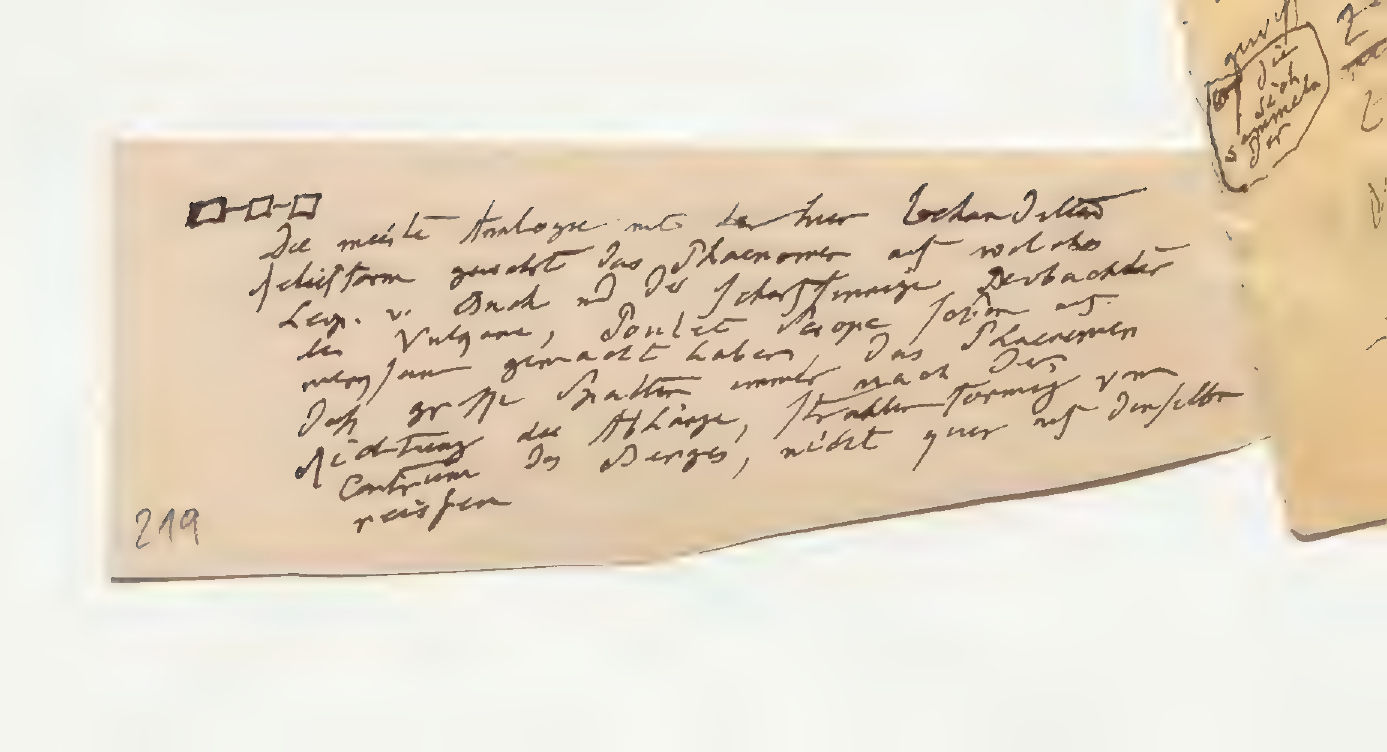 Die meiste Analogie mit der hier behandelten
Schiefform gewährt das Phaenomen auf welches
Leop. v. Buch und der scharfsinnige Beobachter
der Vulgane, Poulet Scrope schon auf
merksam gemacht haben, das Phaenomen
daß große Spalten immer nach der
Richtung der Abhänge, strahlenformig vom
Centrum des Berges, nicht quer auf denselben
reissen
219
die
sich
sammeln
der